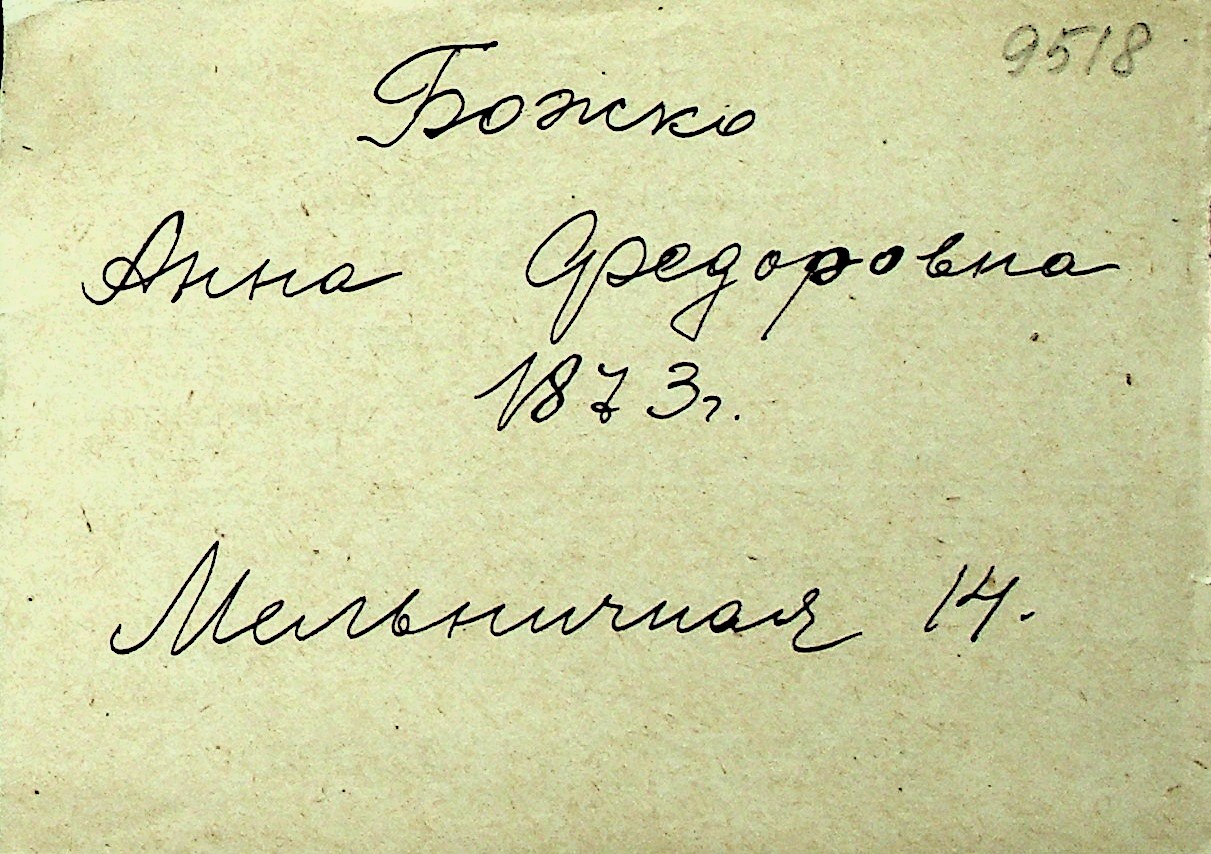 9518
Божко
Анна Федоровна
1873г.
Мельничная 14.